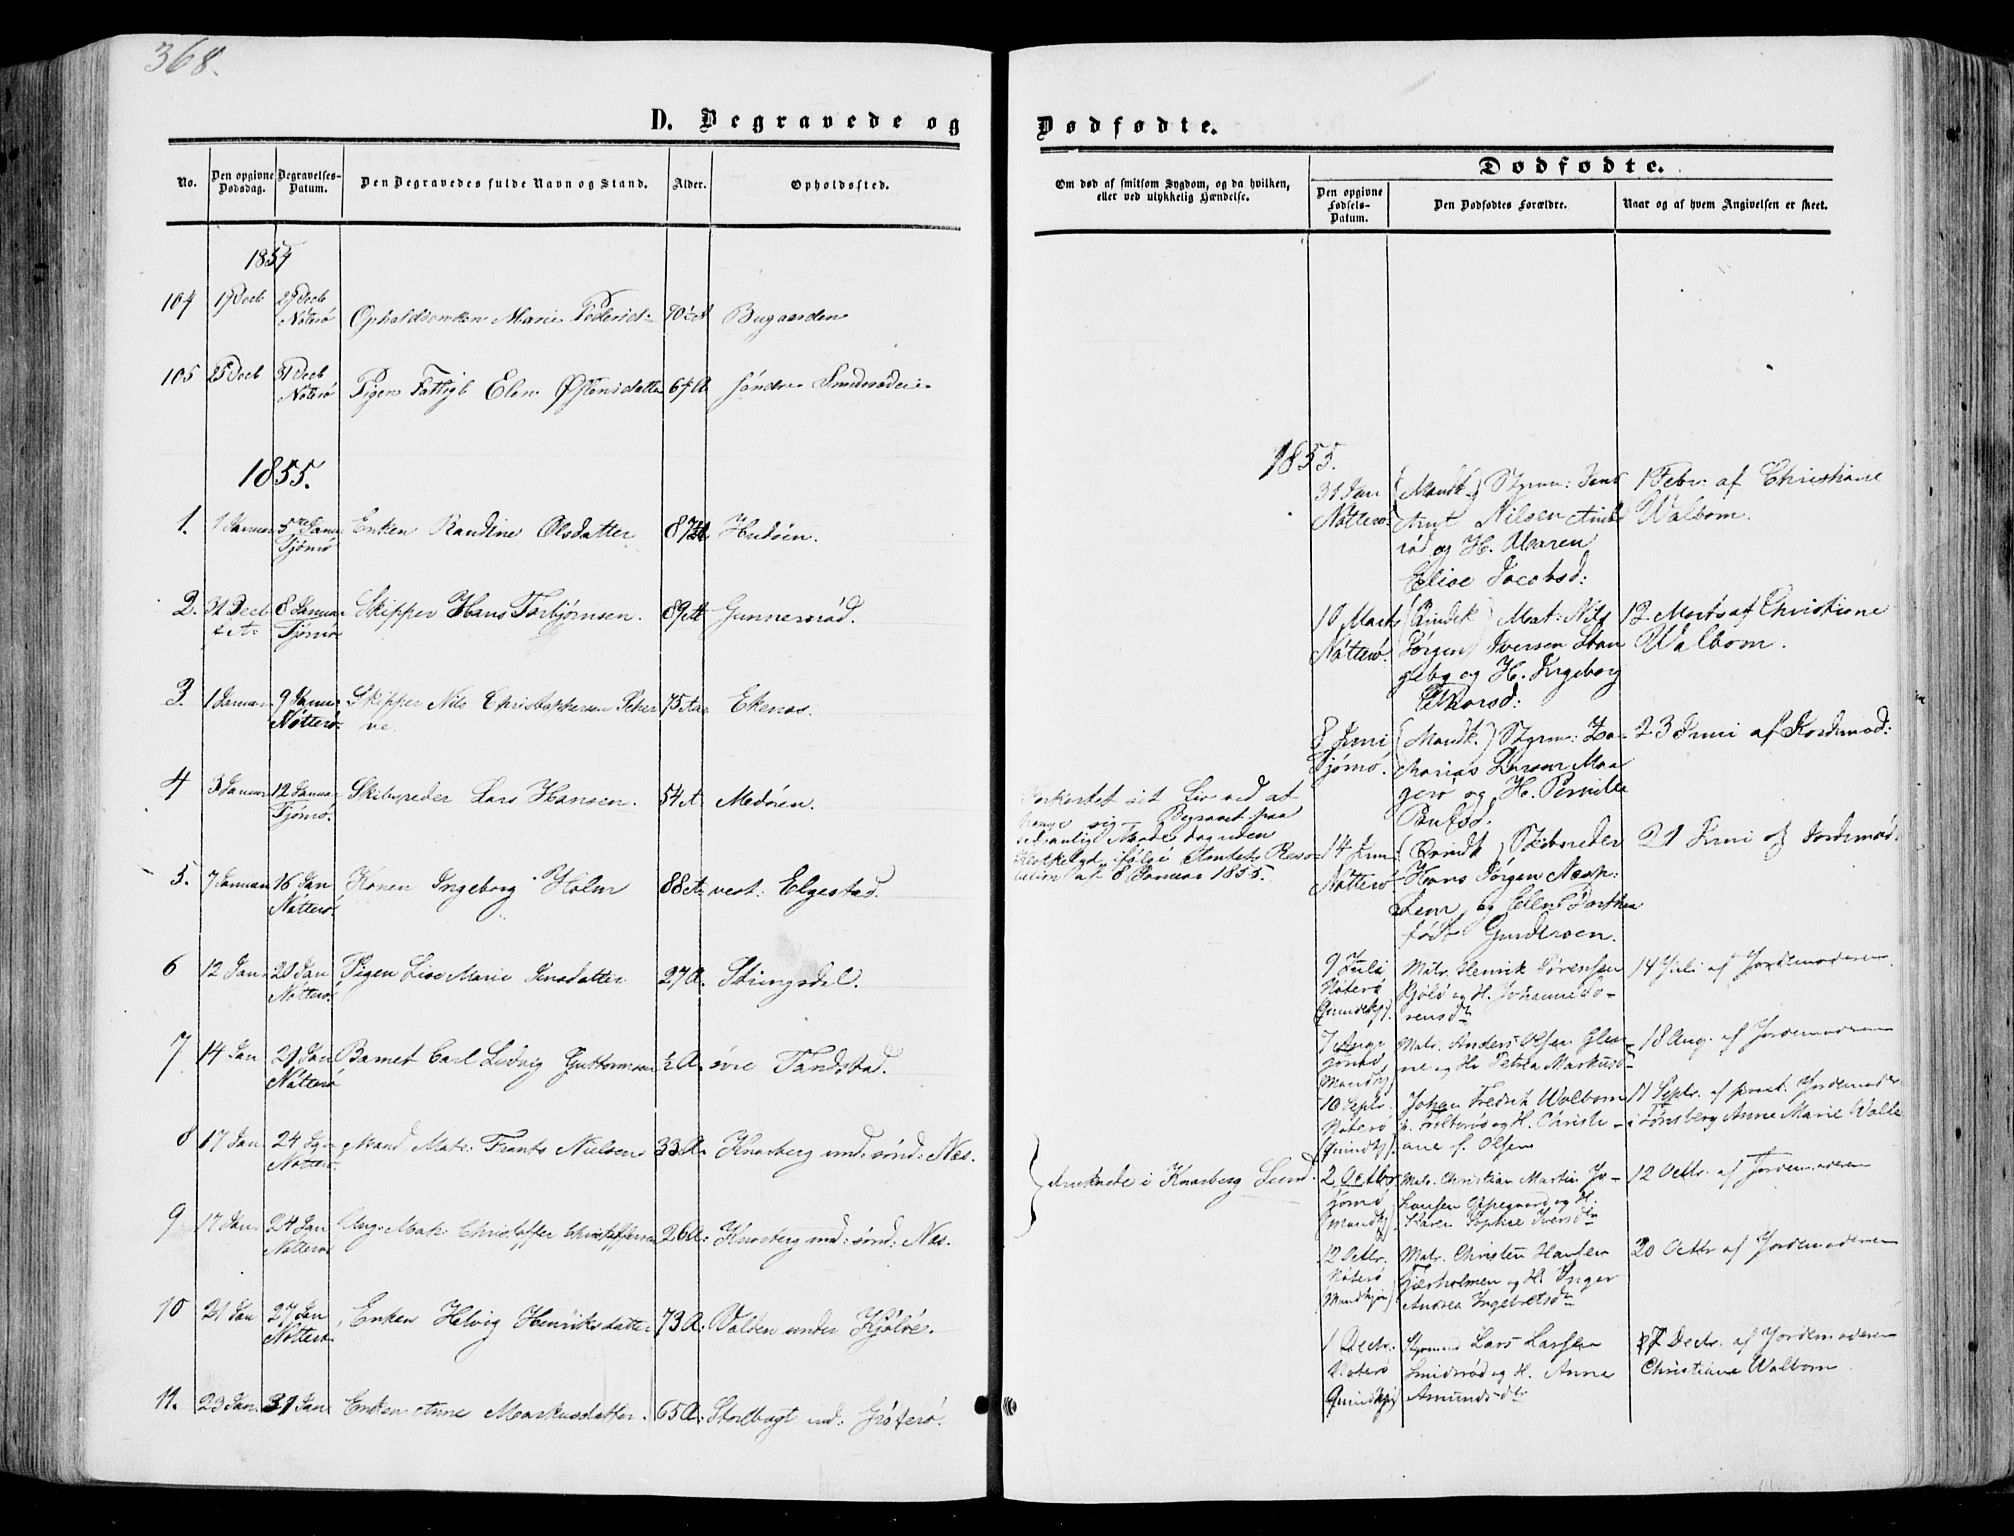 368.
D. Begravede og
No.
Den opgivne Dødsdag.
Begravelses-Datum.
Den Begravedes fulde Navn og Stand.
Alder.
Opholdssted.
1854
104 19 Decb 29 Decb Nøterø Opholdsenken Marie Pedersd: 90 Bugaarden
105 25 Decb 31 Decb Nøterø Pigen Fattigl Elen Østensdatter 67 A søndre Smidsrød
1855.
1. 1 Januar 5 Janu Tjømø Enken Randine Olsdatter 87 Hudøen.
2. 31 Decb 8 Januar Tjømø Skipper Hans Torbjørnsen. 89 Gunnersrød.
3. 1 Januar 9 Janur Nøtterø. Skipper Nils Christophersen 75 Aar Ekenæs.
4 3 Januar 12 Januar Tjømø. Skibsreder Lars Hansen. 54 A Medøen.
5. 7 Januar 16 Jan Nøtterø. Konen Ingeborg Holm 88 A vest: Elgestad.
6 12 Jan. 23 Jan Nøtterø. Pigen Lise Marie Jensdatter 27 A. Stringsdel.
7 14 Jan 21 Jan Nøtterø Barnet Carl Ludvig Guttormsen ½ A. øvre Tandstad.
8 17 Jan. 24 Jan Nøtterø. Mand Mat: Frants Nielsen 33 A. Knarberg und: sønd: Næs.
9 17 Jan. 24 Jan Nøtterø Ung: Mat: Christoffer Christoffersen 26 A: Knarberg und: sønd: Næs.
10 21 Jan 27 Jan Nøtterø. Enken Helvig Henriksdatter 73 A: Volden under Kjøløe.
11. 23 Jan. 31 Jan Enken Anne Markusdatter. 65 A: Storbugt und: Grøterø.
Dødfødte.
Om død af smitsom Sygdom, og da hvilken,
eller ved ulykkelig Hændelse.
Dødfødte.
Den opgivne Fødsels-Datum.
Den Dødfødtes Forældre.
Naar og af hvem Angivelsen er skeet.
1855.
31 Jan Nøtterø. (Mandk.) Styrm: Nilsen og H. Maren Elise Jacobsd: 1 Febr: af Christiane Walbom.
10 Marts Nøtterø. (Qvindk) Mat: Nils Jørgen Iversen Stangeby og H. Ingeborg Thorsd: 12. Marts af Christiane Walbom.
8 Juni Tjømø. (Mandk.) Styrm: Zacharias Larsen Maagerø og H. Pernille Paulsd. 23 Juni af Jordemod:
Forkortet sit Liv ved at
hænge sig. Begravet paa
sædvanlig Maade dog uden
Klokkelyd ifølge Amtets Resolution af 8 Januar 1855.
14 Juni Nøtterø (Qvindk) Skibsreder Hans Jørgen og Ellen Dorthea født Gundersen. 21 Juni af Jordemod.
9 Juli Nøterø Qvindekj). Matr. Henrik Sørensen Kjølø og H. Johanne Sørensdtr 14 Juli af Jordemoderen.
7 Aug. Tjømø Mandkj) Matr. Anders Olsen Glenne og H. Petrea Markusd 18 Aug. af Jordemoderen
10 Septr. Nøterø (Qvindkj). Johan Fredrik Walbom p. Foltvirø og H. Christiane f. Olsen 11 Septr. af prat. Jordemoder i Tønsberg Anne Marie
druknede i Knarberg Sund.
2 Octbr. Tjømø (Mandkj) Matr. Christian Martin Johansen og H. Karen Sophie Iversdtr 12 Octbr. af Jordemoderen
12 Octbr. Nøterø Mandkjøn) Matr. Christen Hansen Fjærholmen og H. Inger Andrea Ingebretsdtr 20 Octbr af Jordemoderen
1 Decbr. Nøterø Qvindkjø) Styrmand Lars Larsen Smidsrød og H. Anne Amundsdtr 7 Decbr. af Jordemoderen Christiane Walbom.